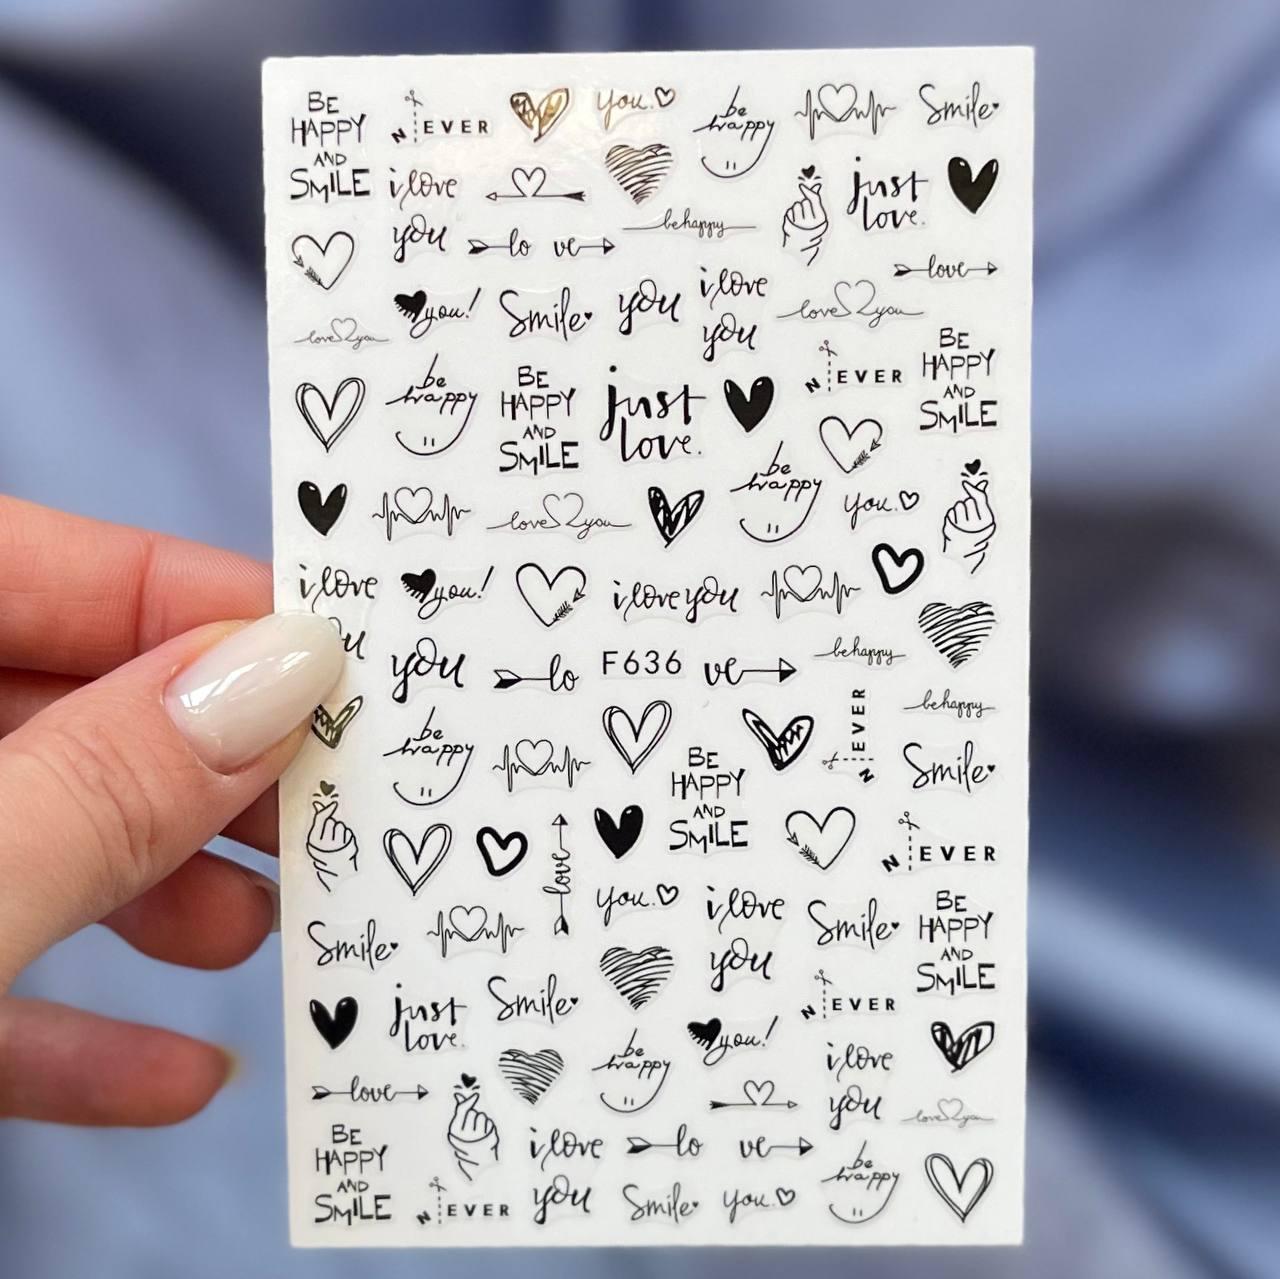 BE
HAPPY
AND
SMILE
N EVER
you.
be
happy
Smile
i love
you
just
love.
be happy
lo ve
love
love you
you!
Smile
you
i love
you
love you
BE
HAPPY
AND
SMILE
N EVER
be
happy
BE
HAPPY
AND
SMILE
just
love.
be
happy
you.
love you
i love
you!
i love you
be happy
you
lo
F636
ve
be happy
N EVER
be
happy
BE
HAPPY
AND
SMILE
Smile
N EVER
love
you.
i love
you
Smile
BE
HAPPY
AND
SMILE
Smile
just
love.
Smile
N EVER
you!
i love
you
be
happy
love
love you
BE
HAPPY
AND
SMILE
N EVER
i love
you
lo ve
Smile
you.
be
happy